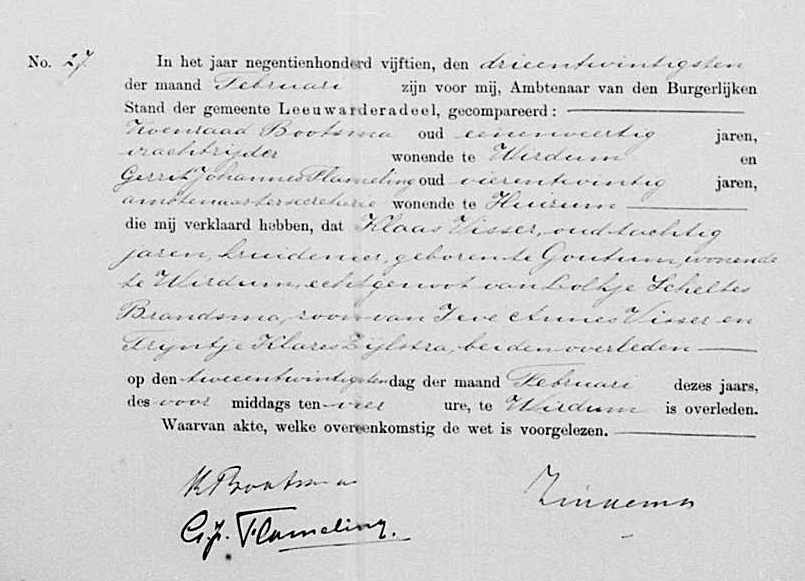 No. 27. In het jaar negentienhonderd vijftien, den drieentwintigsten
der maand Februari zijn voor mij, Ambtenaar van den Burgerlijken
Stand der gemeente Leeuwarderadeel, gecompareerd:
Koenraad Bootsma oud eenenveertig jaren,
vrachtrijder wonende te Wirdum en
Gerrit Johannes Flameling oud vierentwintig jaren,
ambtenaar ter secretarie wonende te Huizum
die mij verklaard hebben, dat Klaas Visser, oud tachtig
jaren, kruidenier, geboren te Goutum, wonende
te Wirdum, echtgenoot van Loltje Scheltes
Brandsma, zoon van Jeve Annes Visser en
Tryntje Klazes Zijlstra, beiden overleden
op den tweeentwintigsten dag der maand Februari dezes jaars,
des voor middags ten vier ure, te Wirdum is overleden.
Waarvan akte, welke overeenkomstig de wet is voorgelezen.
K Bootsma
G.J. Flameling.